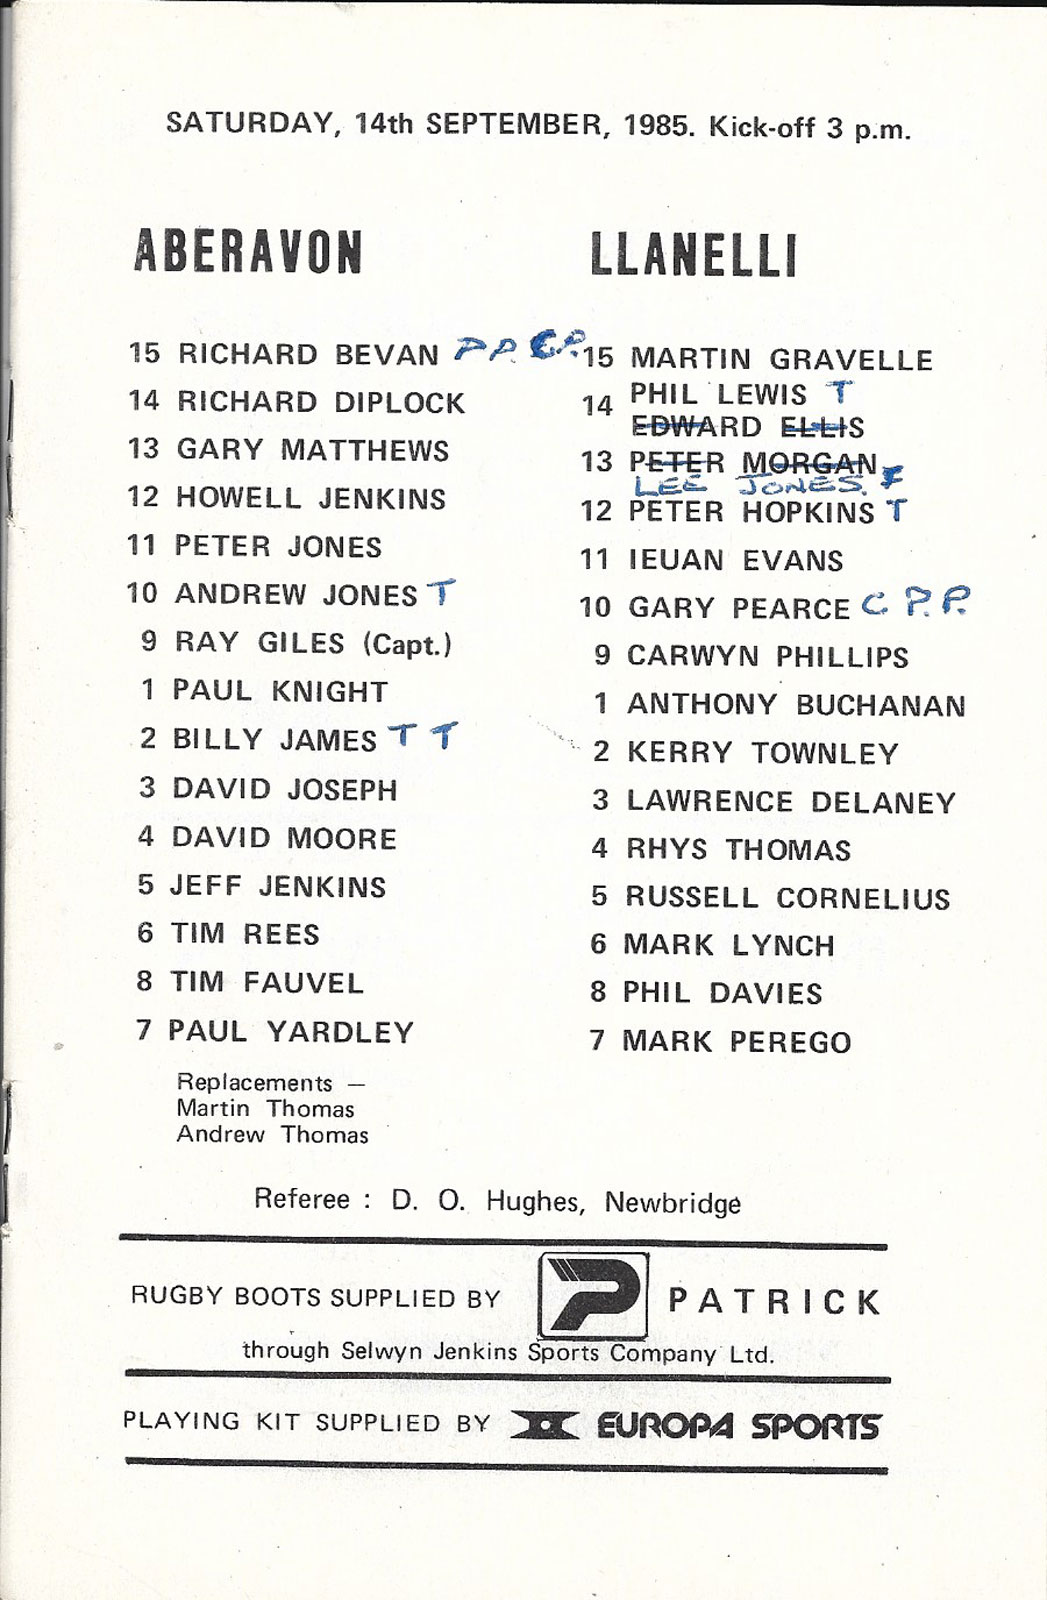 SATURDAY, 14th SEPTEMBER, 1985. Kick-off 3 p.m.
ABERAVON
15 RICHARD BEVAN P P.
14 RICHARD DIPLOCK
13 GARY MATTHEWS
12 HOWELL JENKINS
11 PETER JONES
10 ANDREW JONES T
9 RAY GILES (Capt.)
1 PAUL KNIGHT
2 BILLY JAMES T T
3 DAVID JOSEPH
4 DAVID MOORE
5 JEFF JENKINS
6 TIM REES
8 TIM FAUVEL
7 PAUL YARDLEY
Replacements —
Martin Thomas
Andrew Thomas
LLANELLI
15 MARTIN GRAVELLE
PHIL LEWIS T
14 EDWARD ELLIS
13 PETER MORGAN
LEE JONES.
12 PETER HOPKINS T
11 IEUAN EVANS
10 GARY PEARCE C P. P.
9 CARWYN PHILLIPS
1 ANTHONY BUCHANAN
2 KERRY TOWNLEY
3 LAWRENCE DELANEY
4 RHYS THOMAS
5 RUSSELL CORNELIUS
6 MARK LYNCH
8 PHIL DAVIES
7 MARK PEREGO
Referee : D. O. Hughes, Newbridge
RUGBY BOOTS SUPPLIED BY P PATRICK
through Selwyn Jenkins Sports Company Ltd.
PLAYING KIT SUPPLIED BY EUROPA SPORTS